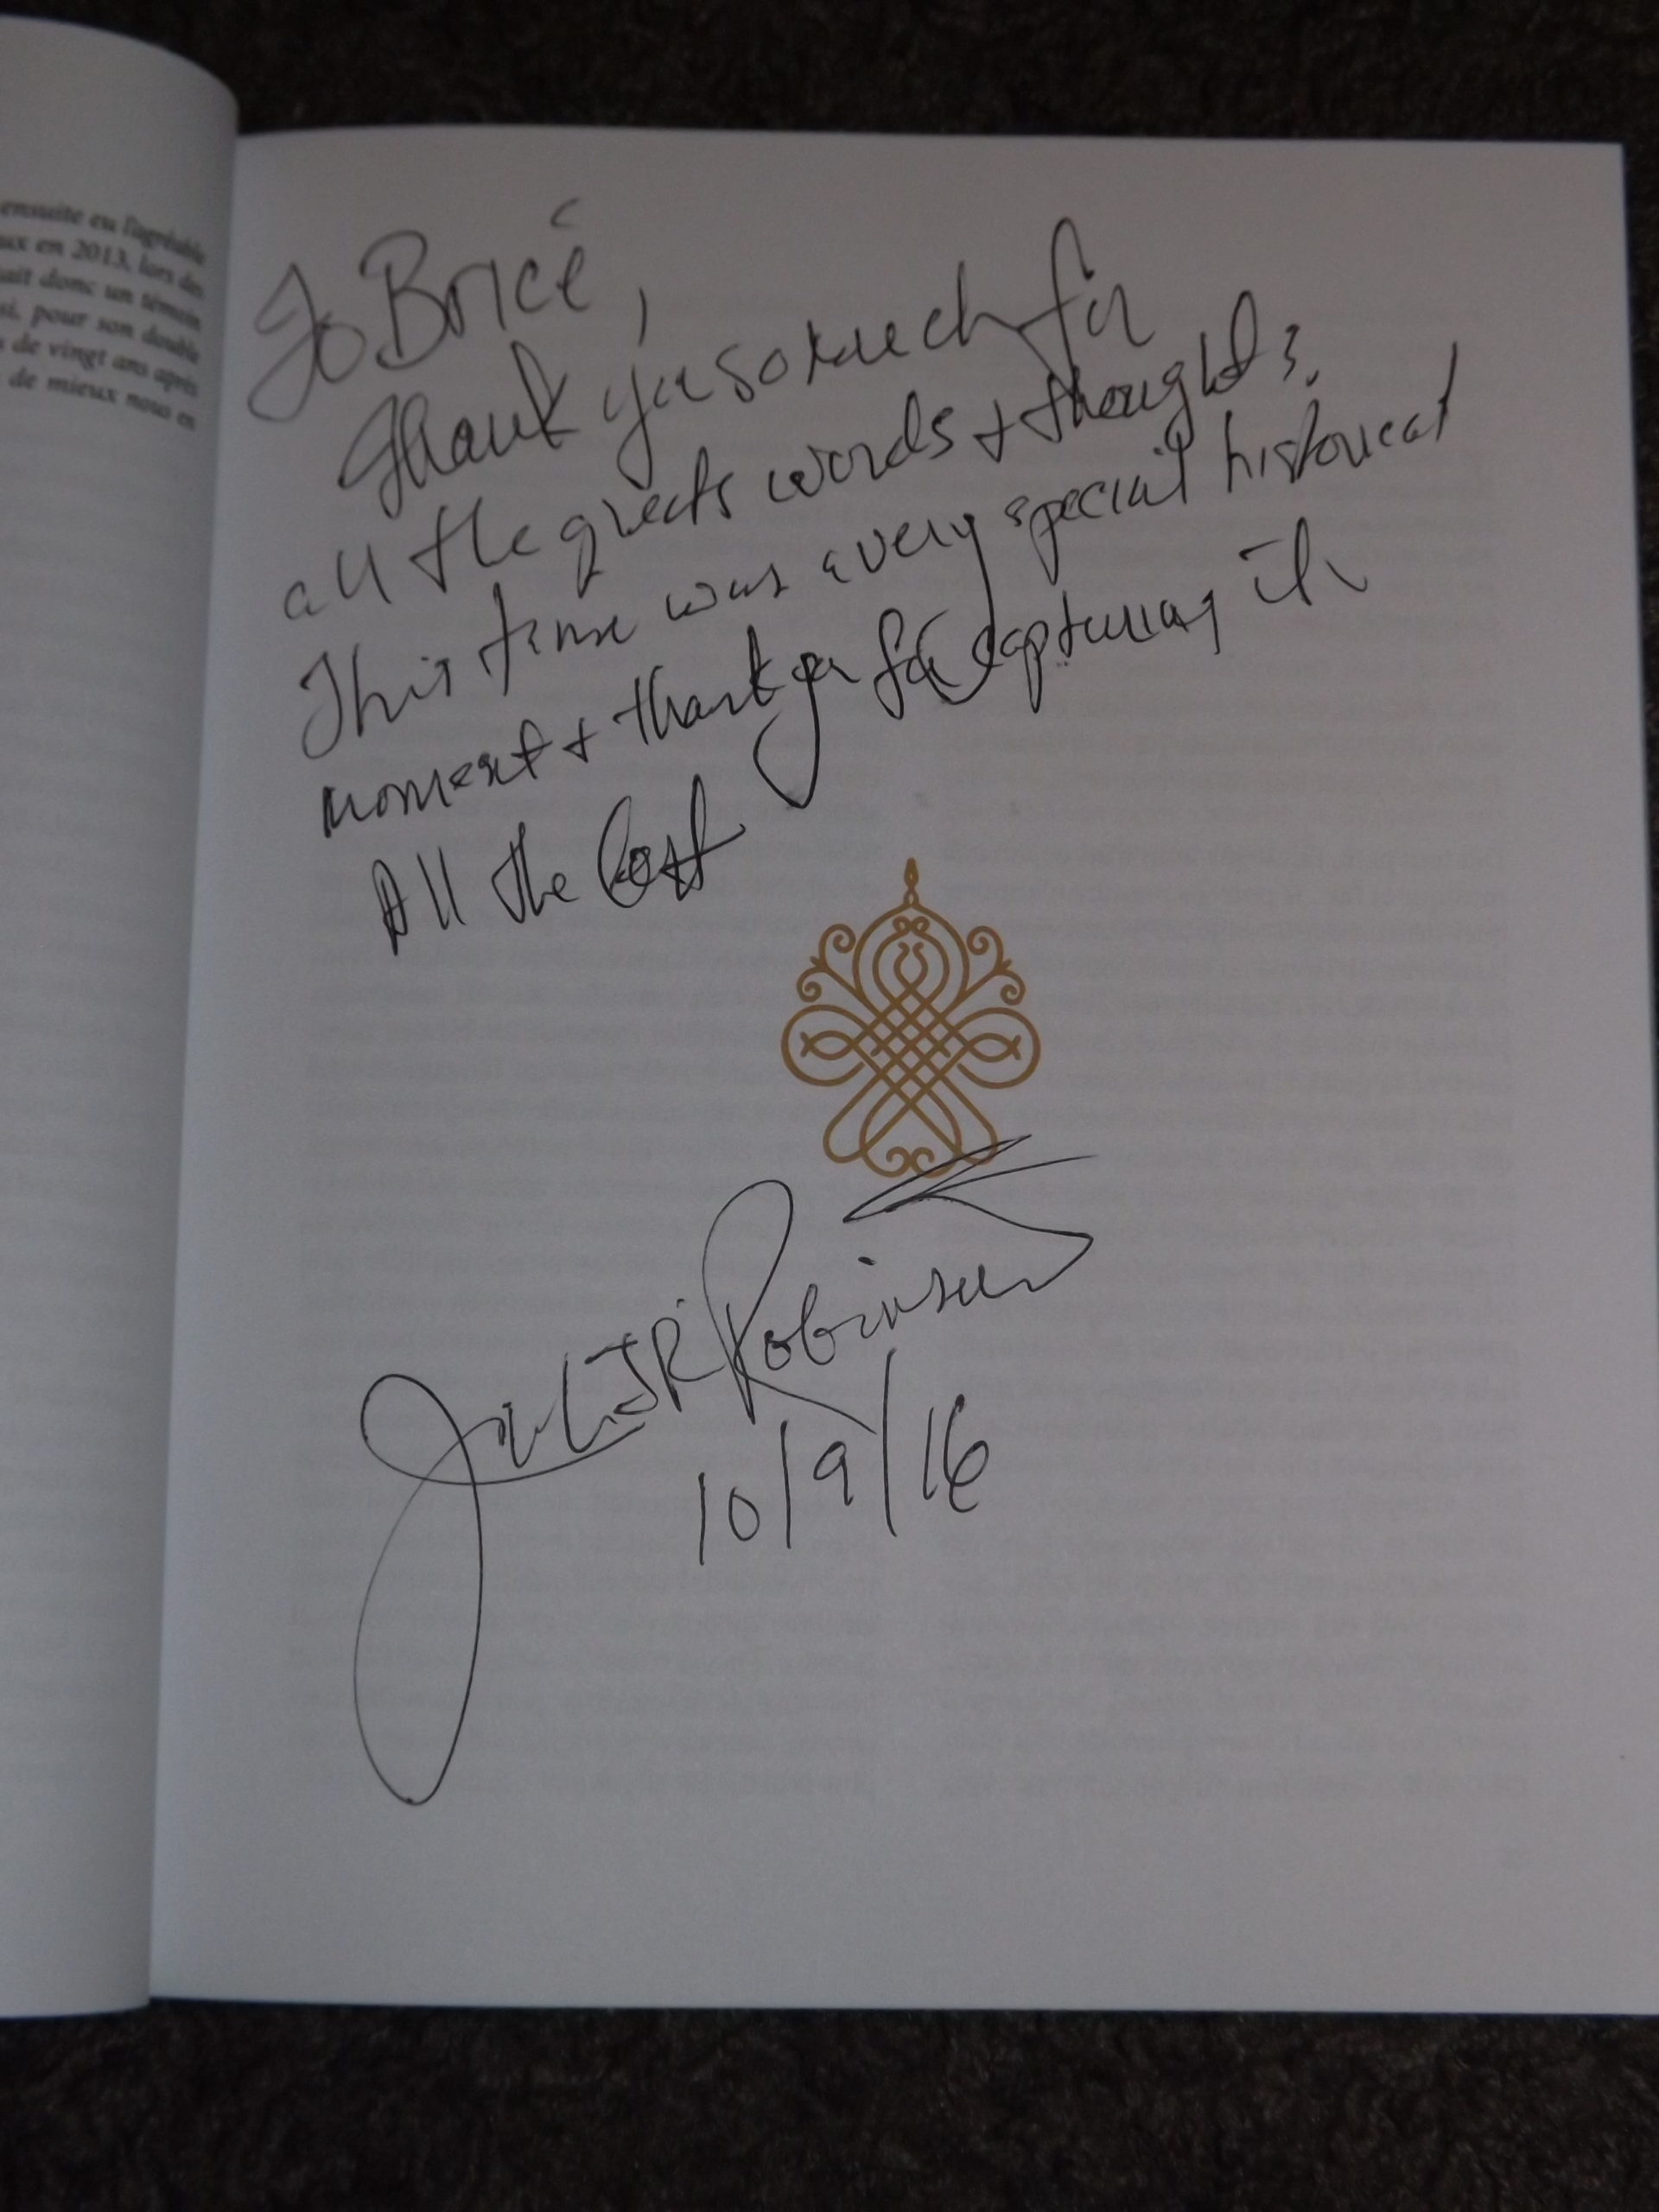 ensuite eu l'agréable
ux en 2013, lors des
ait donc un témoin
si, pour son double
de vingt ans après
de mieux nous en
To Bricé,
Thank you so much for
all the greats words + thoughts.
This time was a very special historical
moment + thank you for capturing it
All the best
JR Robinson
10/9/16